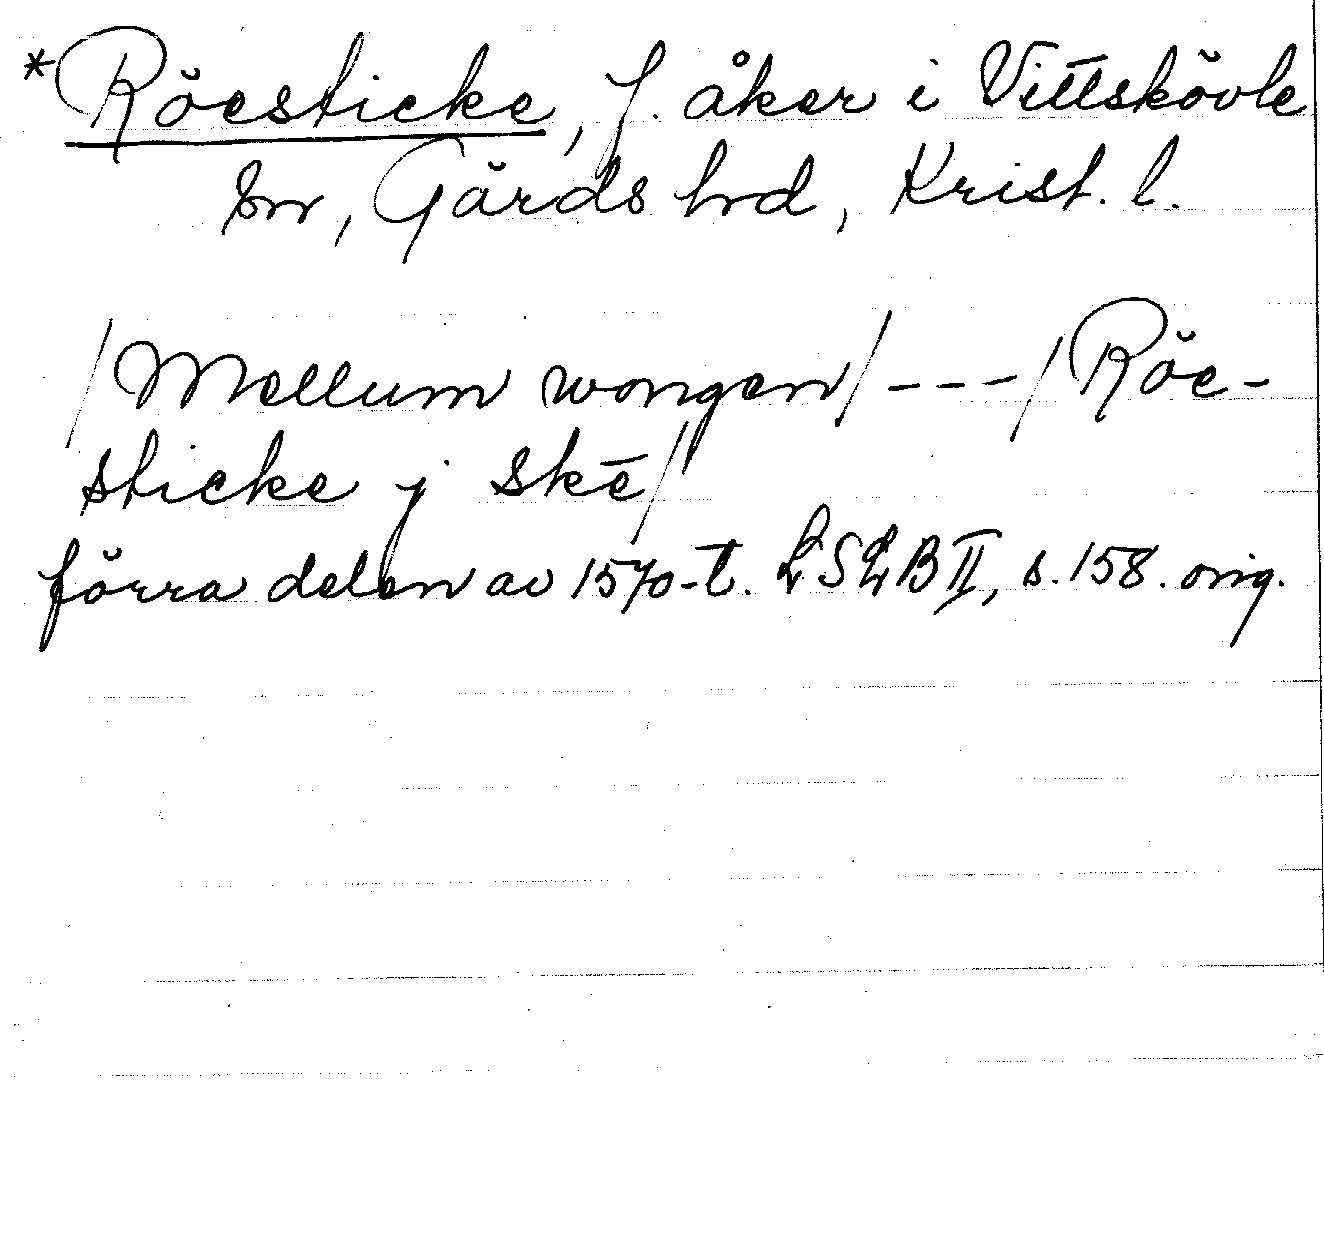 *Röesticke, f. åker i Vittskövle
sn, Gärds hrd, Krist. l.
/Mellum wongen/ - - - /Röe-
sticke j skē/
förra delen av 1570-t. LSLB II, s. 158. orig.